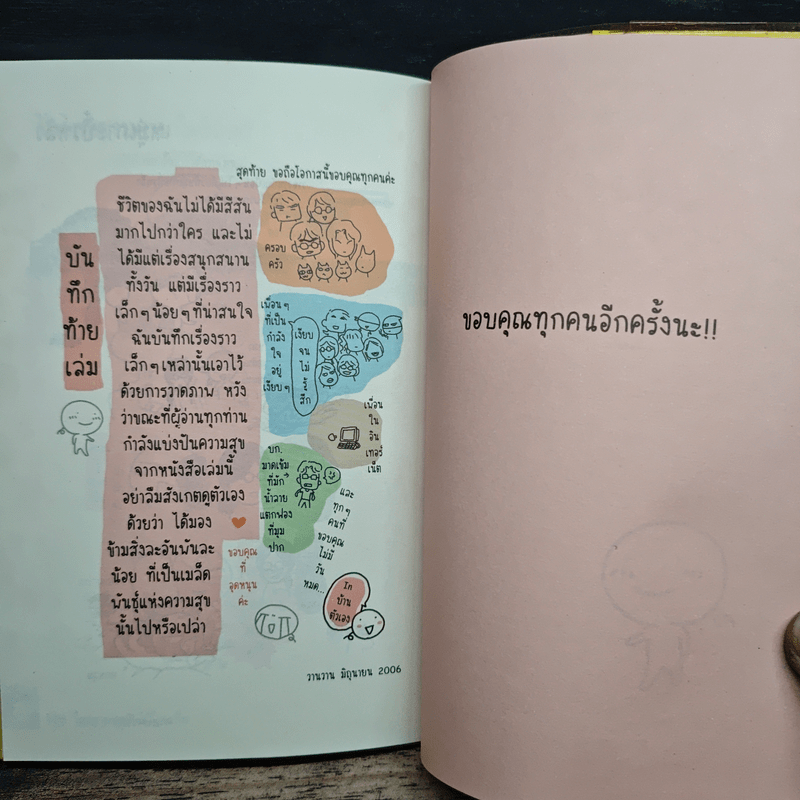 สุดท้าย ขอถือโอกาสนี้ขอบคุณทุกคนค่ะ
บัน
ทึก
ท้าย
เล่ม
ชีวิตของฉันไม่ได้มีสีสัน
มากไปกว่าใคร และไม่
ได้มีแต่เรื่องสนุกสนาน
ทั้งวัน แต่มีเรื่องราว
เล็กๆ น้อยๆ ที่น่าสนใจ
ฉันบันทึกเรื่องราว
เล็กๆ เหล่านั้นเอาไว้
ด้วยการวาดภาพ หวัง
ว่าขณะที่ผู้อ่านทุกท่าน
กำลังแบ่งปันความสุข
จากหนังสือเล่มนี้
อย่าลืมสังเกตดูตัวเอง
ด้วยว่า ได้มอง
ข้ามสิ่งละอันพันละ
น้อย ที่เป็นเมล็ด
พันธุ์แห่งความสุข
นั้นไปหรือเปล่า
ครอบ
ครัว
เพื่อนๆ
ที่เป็น
กำลัง
ใจ
อยู่
เงียบๆ
เงียบ
จน
ไม่
รู้
สึก
เพื่อน
ใน
อิน
เทอร์
เน็ต
บก.
มาดเข้ม
ที่มัก
น้ำลาย
แตกฟอง
ที่มุม
ปาก
และ
ทุกๆ
คนที่
ขอบคุณ
ไม่มี
วัน
หมด...
ขอบคุณ
ที่
อุดหนุน
ค่ะ
โค
บ้าน
ตัวเอง
วานวาน มิถุนายน 2006
ขอบคุณทุกคนอีกครั้งนะ!!